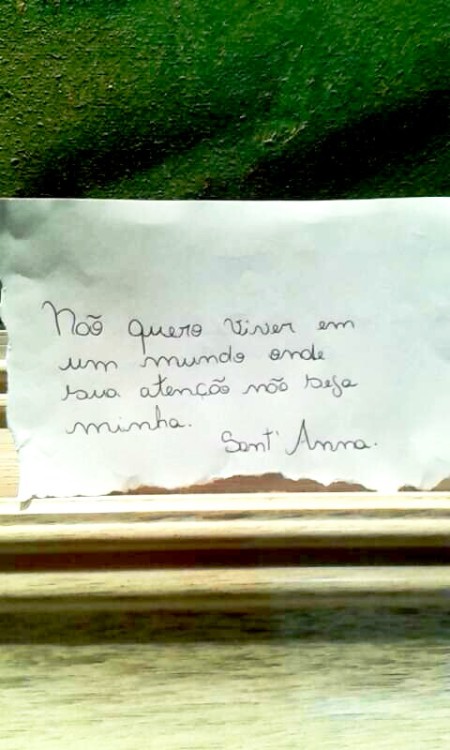 Não quero viver em
um mundo onde
sua atenção não seja
minha.
Sant' Anna.